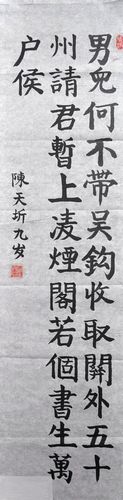 男兒何不带吴鈎收取關外五十
州請君暫上凌煙閣若個書生萬
户侯
陳天圻九岁